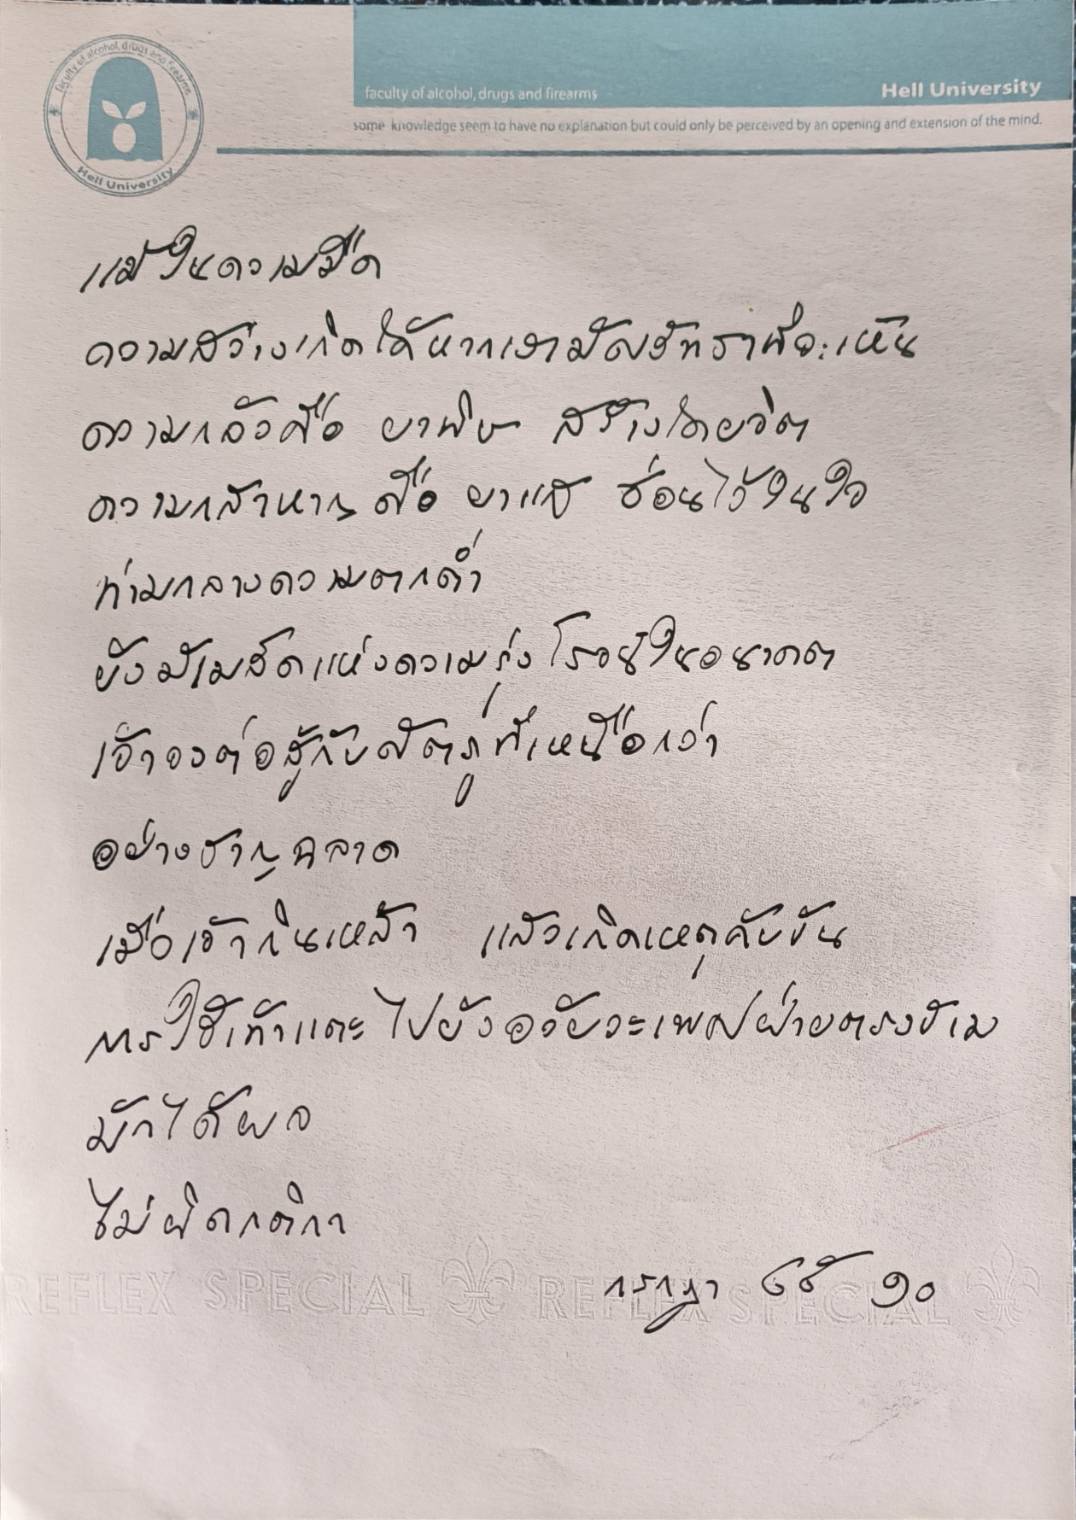 faculty of alcohol, drugs and firearms
Hell University
faculty of alcohol, drugs and firearms
Hell University
some knowledge seem to have no explanation but could only be perceived by an opening and extension of the mind.
แม้ในความมืด
ความสว่างเกิดได้หากเรามีศรัทธาที่จะเห็น
ความกลัวคือ ยาพิษ สร้างโดยจิต
ความกล้าหาญ คือ ยาแก้ ซ่อนไว้ในใจ
ท่ามกลางความตกต่ำ
ยังมีเมล็ดแห่งความรุ่งโรจน์ในอนาคต
เจ้าจงต่อสู้กับศัตรูที่เหนือกว่า
อย่างชาญฉลาด
เมื่อเจ้ากินเหล้า แล้วเกิดเหตุคับขัน
การใช้เท้าเตะไปยังอวัยวะเพศฝ่ายตรงข้าม
มักได้ผล
ไม่ผิดกติกา
กรกฎา ๑๐
REFLEX SPECIAL REFLEX SPECIAL